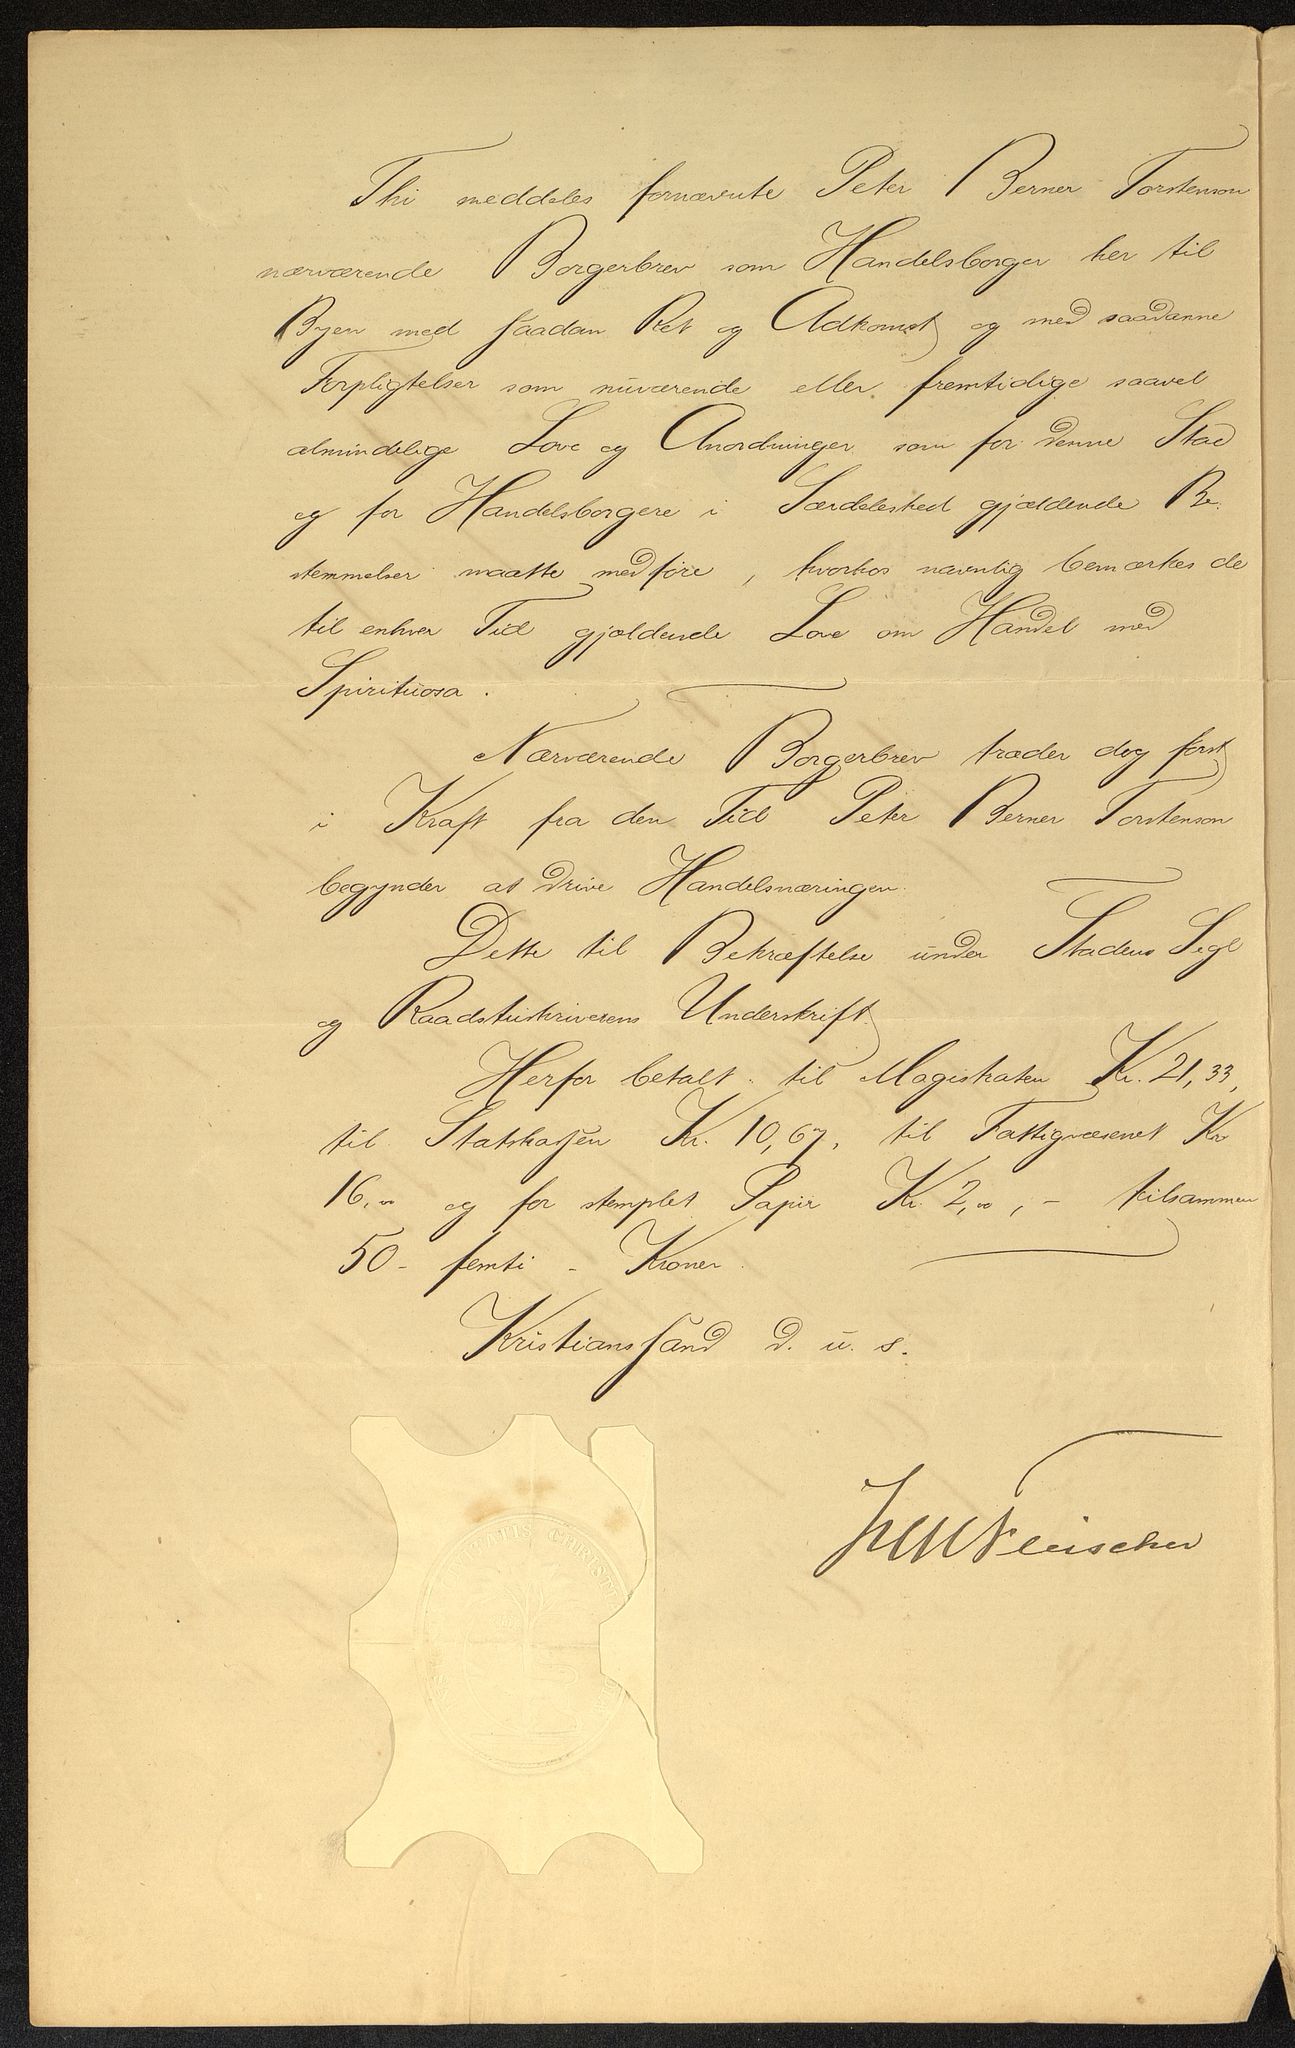 Thi meddeles fornævnte Peter Berner Torstenson
nærværende Borgerbrev som Handelsborger her til
Byen med saadan Ret og Adkomst og med saadanne
Forpligtelser som nuværende eller fremtidige saavel
almindelige Love og Anordninger som for denne Stad
og for Handelsborgere i Særdeleshed gjældende Be-
stemmelser maatte medføre, hvorhos navnlig bemærkes de
til enhver Tid gjældende Love om Handel med
Spirituosa.
Nærværende Borgerbrev træder dog først
i Kraft fra den Tid Peter Berner Torstenson
begynder at drive Handelsnæringen.
Dette til Bekræftelse under Stadens Segl
og Raadstuskriverens Underskrift.
Herfor betalt til Magistraten Kr. 21,33,
til Statskassen Kr. 10,67, til Fattigvæsenet Kr
16,00 og for stemplet Papir Kr. 2,00, - tilsammen
50 - femti - Kroner.
Kristianssand d. u. s.
Fleischer
CHRISTI